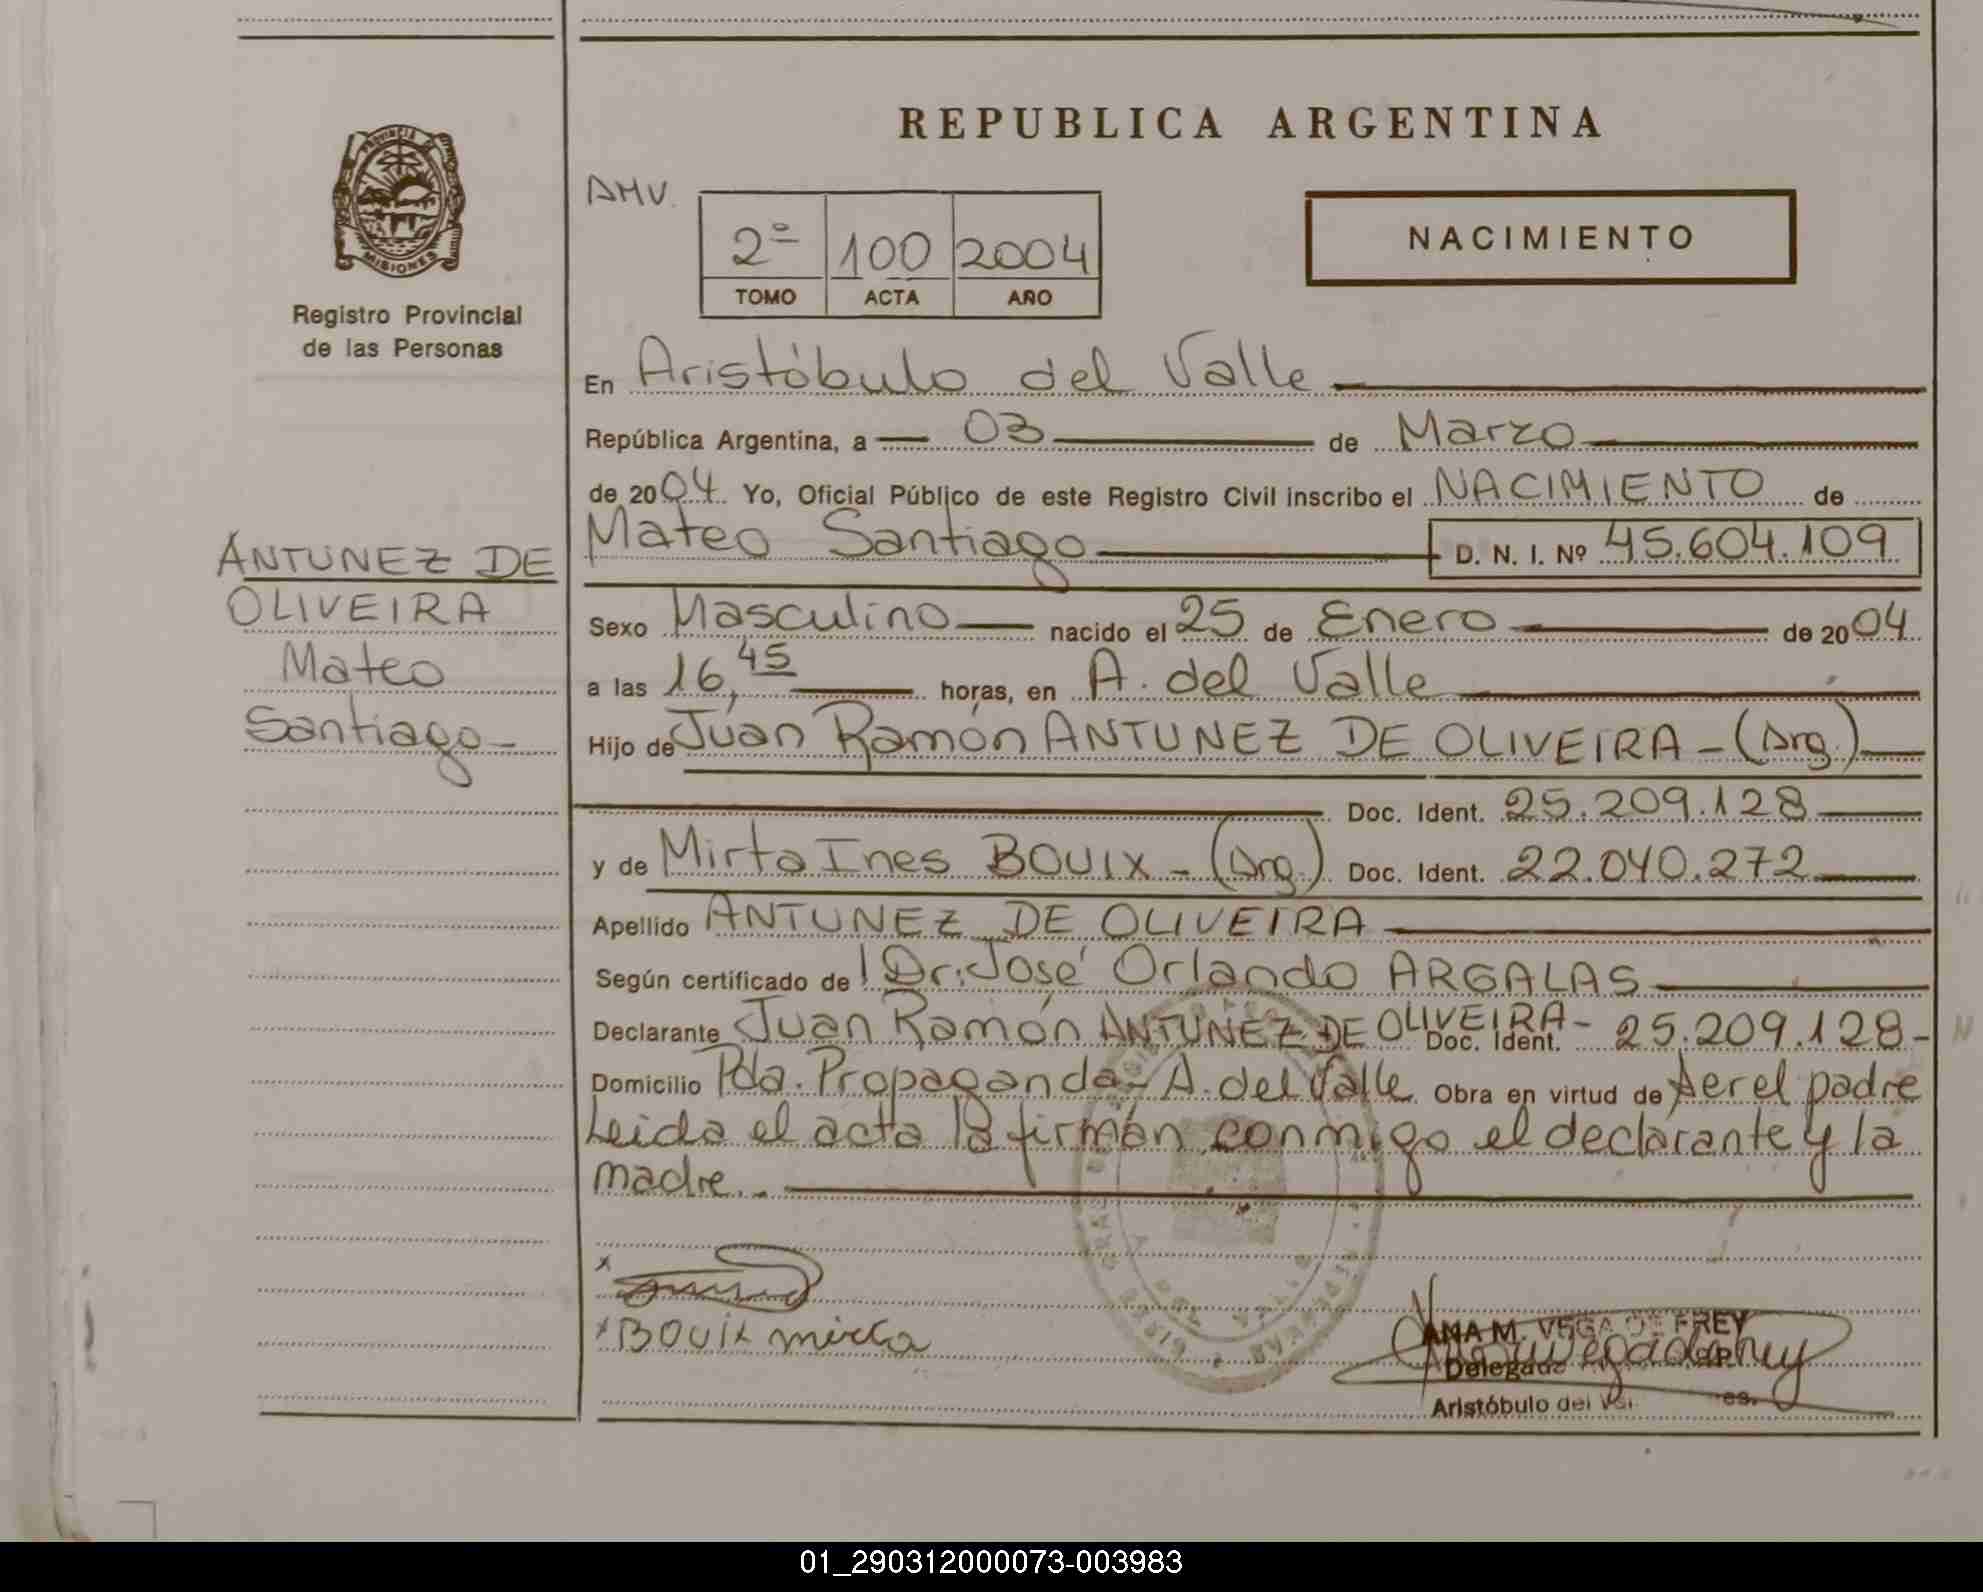 REPUBLICA ARGENTINA
PROVINCIA DE
MISIONES
Registro Provincial
de las Personas
AMV.
2º 100 2004
TOMO ACTA AÑO
NACIMIENTO
En Aristóbulo del Valle
República Argentina, a 03 de Marzo
de 2004. Yo, Oficial Público de este Registro Civil inscribo el NACIMIENTO de
Mateo Santiago D. N. I. Nº 45.604.109
ANTUNEZ DE
OLIVEIRA
Mateo
Santiago-
Sexo Masculino nacido el 25 de Enero de 2004
a las 16,45 horas, en A. del Valle
Hijo de Juan Ramón ANTUNEZ DE OLIVEIRA - (Arg.)
Doc. Ident. 25.209.128
y de Mirta Ines BOUIX - (Arg.) Doc. Ident. 22.040.272
Apellido ANTUNEZ DE OLIVEIRA
Según certificado de Dr. José Orlando ARGALAS
Declarante Juan Ramón ANTUNEZ DE OLIVEIRA - Doc. Ident. 25.209.128-
Domicilio Pda. Propaganda - A. del Valle Obra en virtud de ser el padre
Leida el acta la firman conmigo el declarante y la
madre.
x
x BOUIX mirta
ANA M. VEGA DE FREY
Delegada
Aristóbulo del Val
01_290312000073-003983